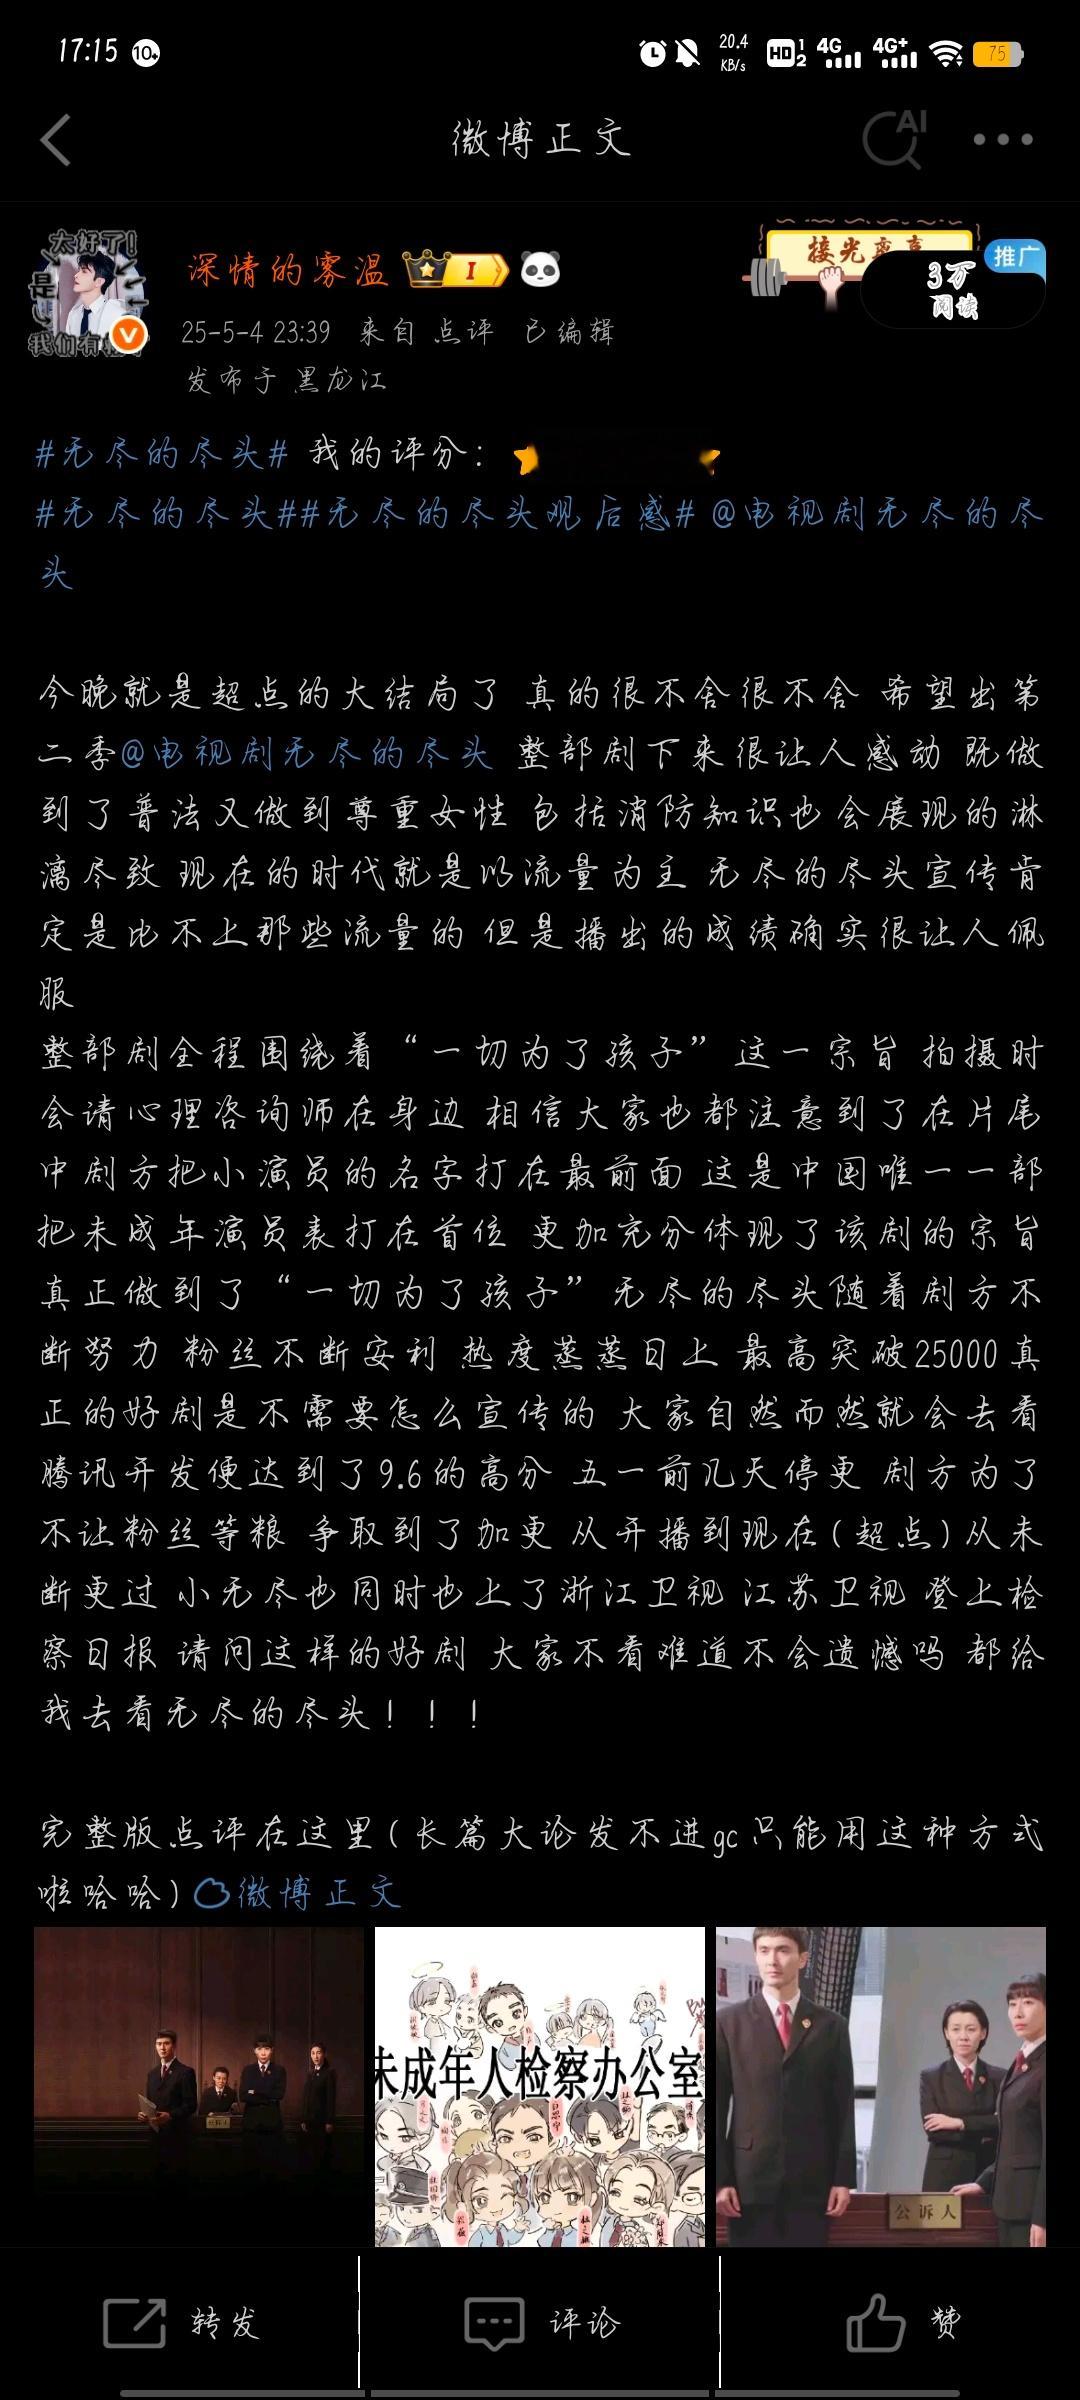 17:15
10+
20.4
KB/s
HD 1 2
4G
4G+
75
微博正文
AI
太好了!
是
我们有
深情的雾温
I
推广
3万
阅读
25-5-4 23:39 来自 点评 已编辑
发布于 黑龙江
#无尽的尽头# 我的评分:
#无尽的尽头##无尽的尽头观后感# @电视剧无尽的尽
头
今晚就是超点的大结局了 真的很不舍很不舍 希望出第
二季@电视剧无尽的尽头 整部剧下来很让人感动 既做
到了普法又做到尊重女性 包括消防知识也会展现的淋
漓尽致 现在的时代就是以流量为主 无尽的尽头宣传肯
定是比不上那些流量的 但是播出的成绩确实很让人佩
服
整部剧全程围绕着“一切为了孩子”这一宗旨 拍摄时
会请心理咨询师在身边 相信大家也都注意到了在片尾
中剧方把小演员的名字打在最前面 这是中国唯一一部
把未成年演员表打在首位 更加充分体现了该剧的宗旨
真正做到了“一切为了孩子”无尽的尽头随着剧方不
断努力 粉丝不断安利 热度蒸蒸日上 最高突破25000真
正的好剧是不需要怎么宣传的 大家自然而然就会去看
腾讯开发便达到了9.6的高分 五一前几天停更 剧方为了
不让粉丝等粮 争取到了加更 从开播到现在(超点)从未
断更过 小无尽也同时也上了浙江卫视 江苏卫视 登上检
察日报 请问这样的好剧 大家不看难道不会遗憾吗 都给
我去看无尽的尽头!!!
完整版点评在这里(长篇大论发不进gc只能用这种方式
啦哈哈)微博正文
未成年人检察办公室
公诉人
转发
评论
赞